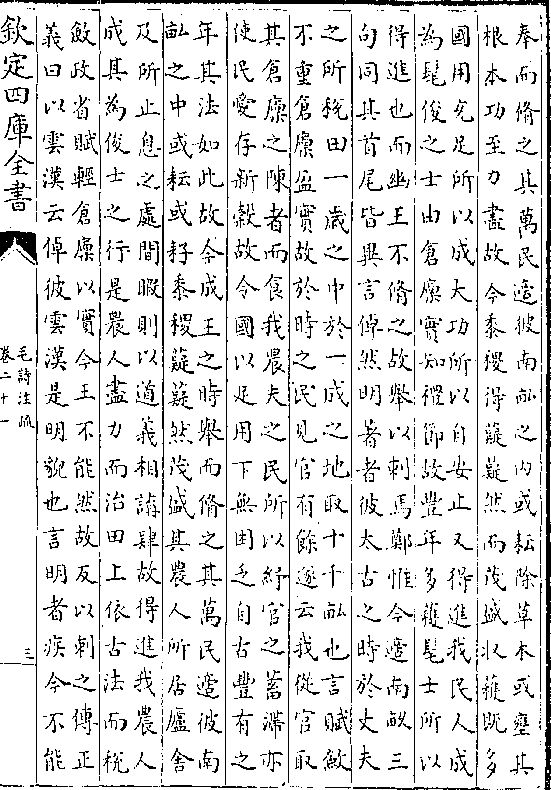 奉而脩之其萬民適彼南畝之内或耘除草木或壅其
根本功至力盡故令黍稷得薿薿然而茂盛收穫既多
國用充足所以成大功所以自安止又得進我民人成
為髦俊之士由倉廩實知禮節故豐年多穫髦士所以
得進也而幽王不脩之故舉以刺焉鄭惟今適南畝三
句同其首尾皆異言倬然明著者彼太古之時於丈夫
之所稅田一歲之中於一成之地取十千畝也言賦斂
不重倉廩盈實故於時之民見官有餘遂云我從官取
其倉廩之陳者而食我農夫之民所以紓官之蓄滯亦
使民愛存新穀故令國以足用下無困乏自古豐有之
年其法如此故今成王之時舉而脩之其萬民適彼南
畝之中或耘或耔黍稷薿薿然茂盛其農人所居廬舍
及所止息之處閒暇則以道義相講肆故得進我農人
成其為俊士之行是農人盡力而治田上依古法而稅
斂政省賦輕倉廩以實今王不能然故反以刺之傳正
義曰以雲漢云倬彼雲漢是明貌也言明者疾今不能
欽定四庫全書
毛詩注疏
卷二十一
三